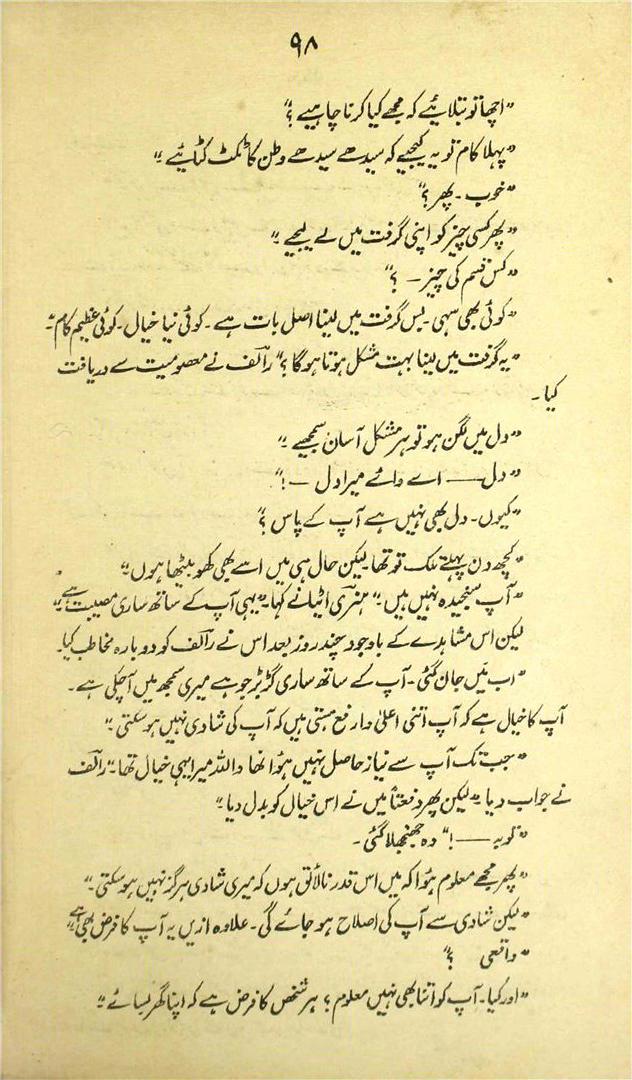 ۹۸
"اچھا تو بتلائیے کہ مجھے کیا کرنا چاہیے؟"
"پہلا کام تو یہ کیجیے کہ سیدھے سیدھے وطن کا ٹکٹ کٹائیے۔"
"خوب۔ پھر؟"
"پھر کسی چیز کو اپنی گرفت میں لے لیجیے۔"
"کس قسم کی چیز — ؟"
"کوئی بھی سہی۔ بس گرفت میں لینا اصل بات ہے۔ کوئی نیا خیال۔ کوئی عظیم کام۔"
"یہ گرفت میں لینا بہت مشکل ہوتا ہو گا؟" رالف نے معصومیت سے دریافت
کیا۔
"دل میں لگن ہو تو ہر مشکل آسان سمجھیے۔"
"دل —— اے وائے میرا دل —!"
"کیوں۔ دل بھی نہیں ہے آپ کے پاس؟"
"کچھ دن پہلے تک تو تھا لیکن حال ہی میں اسے بھی کھو بیٹھا ہوں۔"
"آپ سنجیدہ نہیں ہیں۔" ہنری اٹیا نے کہا۔ "یہی آپ کے ساتھ ساری مصیبت ہے۔"
لیکن اس مشاہدے کے باوجود چند روز بعد اس نے رالف کو دوبارہ مخاطب کیا۔
"اب میں جان گئی۔ آپ کے ساتھ ساری گڑبڑ جو ہے میری سمجھ میں آ چکی ہے۔
آپ کا خیال ہے کہ آپ اتنی اعلیٰ و ارفع ہستی ہیں کہ آپ کی شادی نہیں ہو سکتی۔"
"جب تک آپ سے نیاز حاصل نہیں ہوا تھا واللہ میرا یہی خیال تھا۔" رالف
نے جواب دیا۔ "لیکن پھر دفعتاً میں نے اس خیال کو بدل دیا۔"
"توبہ ——!" وہ جھنجھلا گئی۔
"پھر مجھے معلوم ہوا کہ میں اس قدر نالائق ہوں کہ میری شادی ہرگز نہیں ہو سکتی۔"
"لیکن شادی سے آپ کی اصلاح ہو جائے گی۔ علاوہ ازیں یہ آپ کا فرض بھی ہے۔"
"واقعی ؟"
"اور کیا۔ آپ کو اتنا بھی نہیں معلوم؟ ہر شخص کا فرض ہے کہ اپنا گھر بسائے۔"